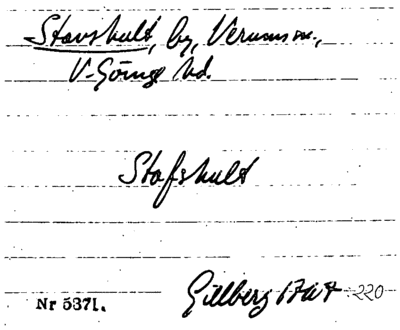 Stavshult, by, Verums sn.,
V-Göinge hd.
Stafshult
Gillberg 220
Nr 5371.